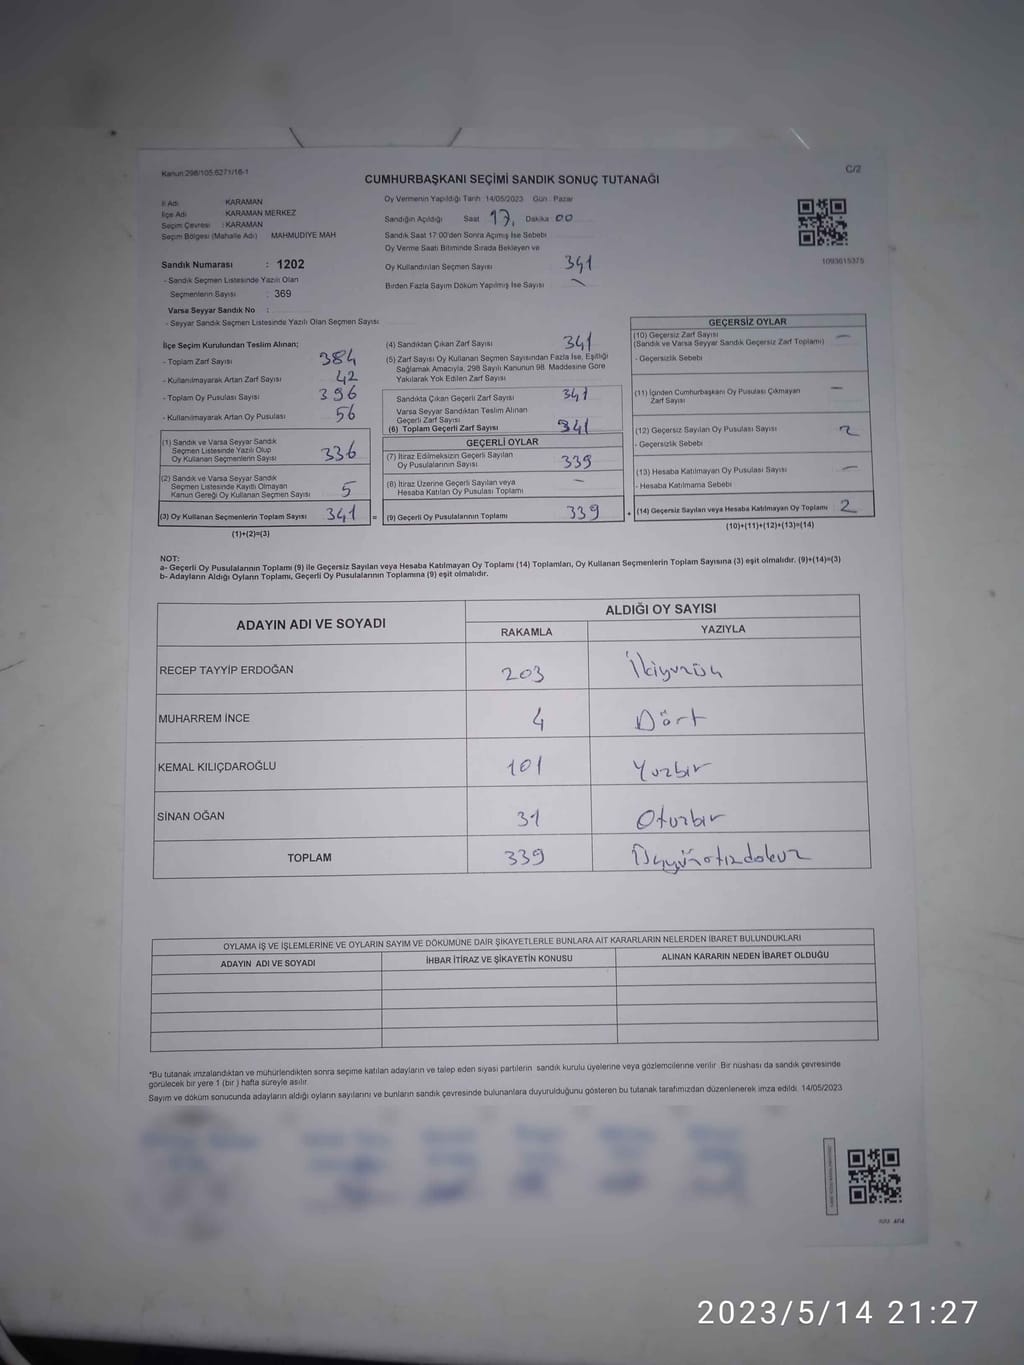 Kanun:298/105,6271/16-1
C/2
CUMHURBAŞKANI SEÇİMİ SANDIK SONUÇ TUTANAĞI
İl Adı KARAMAN
İlçe Adı KARAMAN MERKEZ
Seçim Çevresi : KARAMAN
Seçim Bölgesi (Mahalle Adı) MAHMUDIYE MAH
Sandık Numarası : 1202
- Sandık Seçmen Listesinde Yazılı Olan
Seçmenlerin Sayısı : 369
Varsa Seyyar Sandık No :
- Seyyar Sandık Seçmen Listesinde Yazılı Olan Seçmen Sayısı
Oy Vermenin Yapıldığı Tarih 14/05/2023 Gün : Pazar
Sandığın Açıldığı Saat 17, Dakika 00
Sandık Saat 17:00'den Sonra Açılmış İse Sebebi
Oy Verme Saati Bitiminde Sırada Bekleyen ve
Oy Kullandırılan Seçmen Sayısı 341
Birden Fazla Sayım Döküm Yapılmış İse Sayısı
1093615375
İlçe Seçim Kurulundan Teslim Alınan;
- Toplam Zarf Sayısı 384
- Kullanılmayarak Artan Zarf Sayısı 42
- Toplam Oy Pusulası Sayısı 396
- Kullanılmayarak Artan Oy Pusulası 56
(1) Sandık ve Varsa Seyyar Sandık
Seçmen Listesinde Yazılı Olup
Oy Kullanan Seçmenlerin Sayısı 336
(2) Sandık ve Varsa Seyyar Sandık
Seçmen Listesinde Kayıtlı Olmayan
Kanun Gereği Oy Kullanan Seçmen Sayısı 5
(3) Oy Kullanan Seçmenlerin Toplam Sayısı 341 =
(1)+(2)=(3)
(4) Sandıktan Çıkan Zarf Sayısı 341
(5) Zarf Sayısı Oy Kullanan Seçmen Sayısından Fazla İse, Eşitliği
Sağlamak Amacıyla, 298 Sayılı Kanunun 98. Maddesine Göre
Yakılarak Yok Edilen Zarf Sayısı
Sandıkta Çıkan Geçerli Zarf Sayısı 341
Varsa Seyyar Sandıktan Teslim Alınan
Geçerli Zarf Sayısı
(6) Toplam Geçerli Zarf Sayısı 341
GEÇERLİ OYLAR
(7) İtiraz Edilmeksizin Geçerli Sayılan
Oy Pusulalarının Sayısı 339
(8) İtiraz Üzerine Geçerli Sayılan veya
Hesaba Katılan Oy Pusulası Toplamı –
(9) Geçerli Oy Pusulalarının Toplamı 339 +
GEÇERSİZ OYLAR
(10) Geçersiz Zarf Sayısı –
(Sandık ve Varsa Seyyar Sandık Geçersiz Zarf Toplamı)
- Geçersizlik Sebebi
(11) İçinden Cumhurbaşkanı Oy Pusulası Çıkmayan –
Zarf Sayısı
(12) Geçersiz Sayılan Oy Pusulası Sayısı 2
- Geçersizlik Sebebi
(13) Hesaba Katılmayan Oy Pusulası Sayısı –
- Hesaba Katılmama Sebebi
(14) Geçersiz Sayılan veya Hesaba Katılmayan Oy Toplamı 2
(10)+(11)+(12)+(13)=(14)
NOT:
a- Geçerli Oy Pusulalarının Toplamı (9) ile Geçersiz Sayılan veya Hesaba Katılmayan Oy Toplamı (14) Toplamları, Oy Kullanan Seçmenlerin Toplam Sayısına (3) eşit olmalıdır. (9)+(14)=(3)
b- Adayların Aldığı Oyların Toplamı, Geçerli Oy Pusulalarının Toplamına (9) eşit olmalıdır.
ADAYIN ADI VE SOYADI
ALDIĞI OY SAYISI
RAKAMLA YAZIYLA
RECEP TAYYİP ERDOĞAN 203 İkiyüzüç
MUHARREM İNCE 4 Dört
KEMAL KILIÇDAROĞLU 101 Yüzbir
SİNAN OĞAN 31 Otuzbir
TOPLAM 339 Üçyüzotuzdokuz
OYLAMA İŞ VE İŞLEMLERİNE VE OYLARIN SAYIM VE DÖKÜMÜNE DAİR ŞİKAYETLERLE BUNLARA AİT KARARLARIN NELERDEN İBARET BULUNDUKLARI
ADAYIN ADI VE SOYADI İHBAR İTİRAZ VE ŞİKAYETİN KONUSU ALINAN KARARIN NEDEN İBARET OLDUĞU
*Bu tutanak imzalandıktan ve mühürlendikten sonra seçime katılan adayların ve talep eden siyasi partilerin sandık kurulu üyelerine veya gözlemcilerine verilir. Bir nüshası da sandık çevresinde
görülecek bir yere 1 (bir ) hafta süreyle asılır.
Sayım ve döküm sonucunda adayların aldığı oyların sayılarını ve bunların sandık çevresinde bulunanlara duyurulduğunu gösteren bu tutanak tarafımızdan düzenlenerek imza edildi. 14/05/2023
2023/5/14 21:27